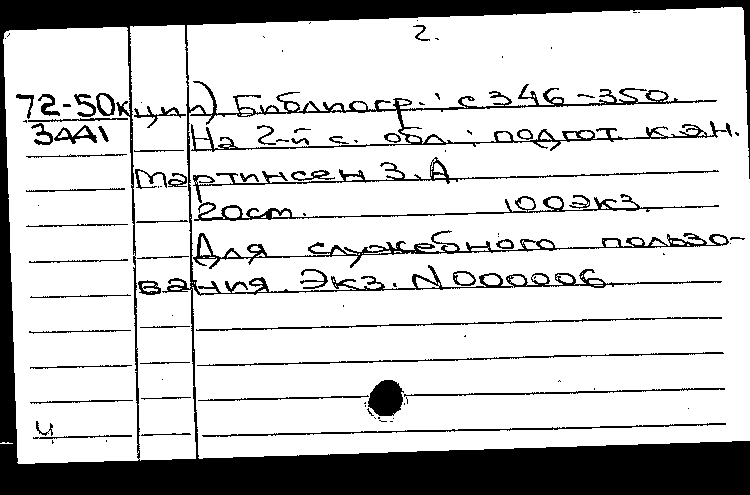 2.
72-50кции) Библиогр.: с 346-350.
3441 На 2-й с. обл.: подгот. к.э.н.
Мартинсен З.А
20см. 100экз.
Для служебного пользо-
вания. Экз. N000006.
4